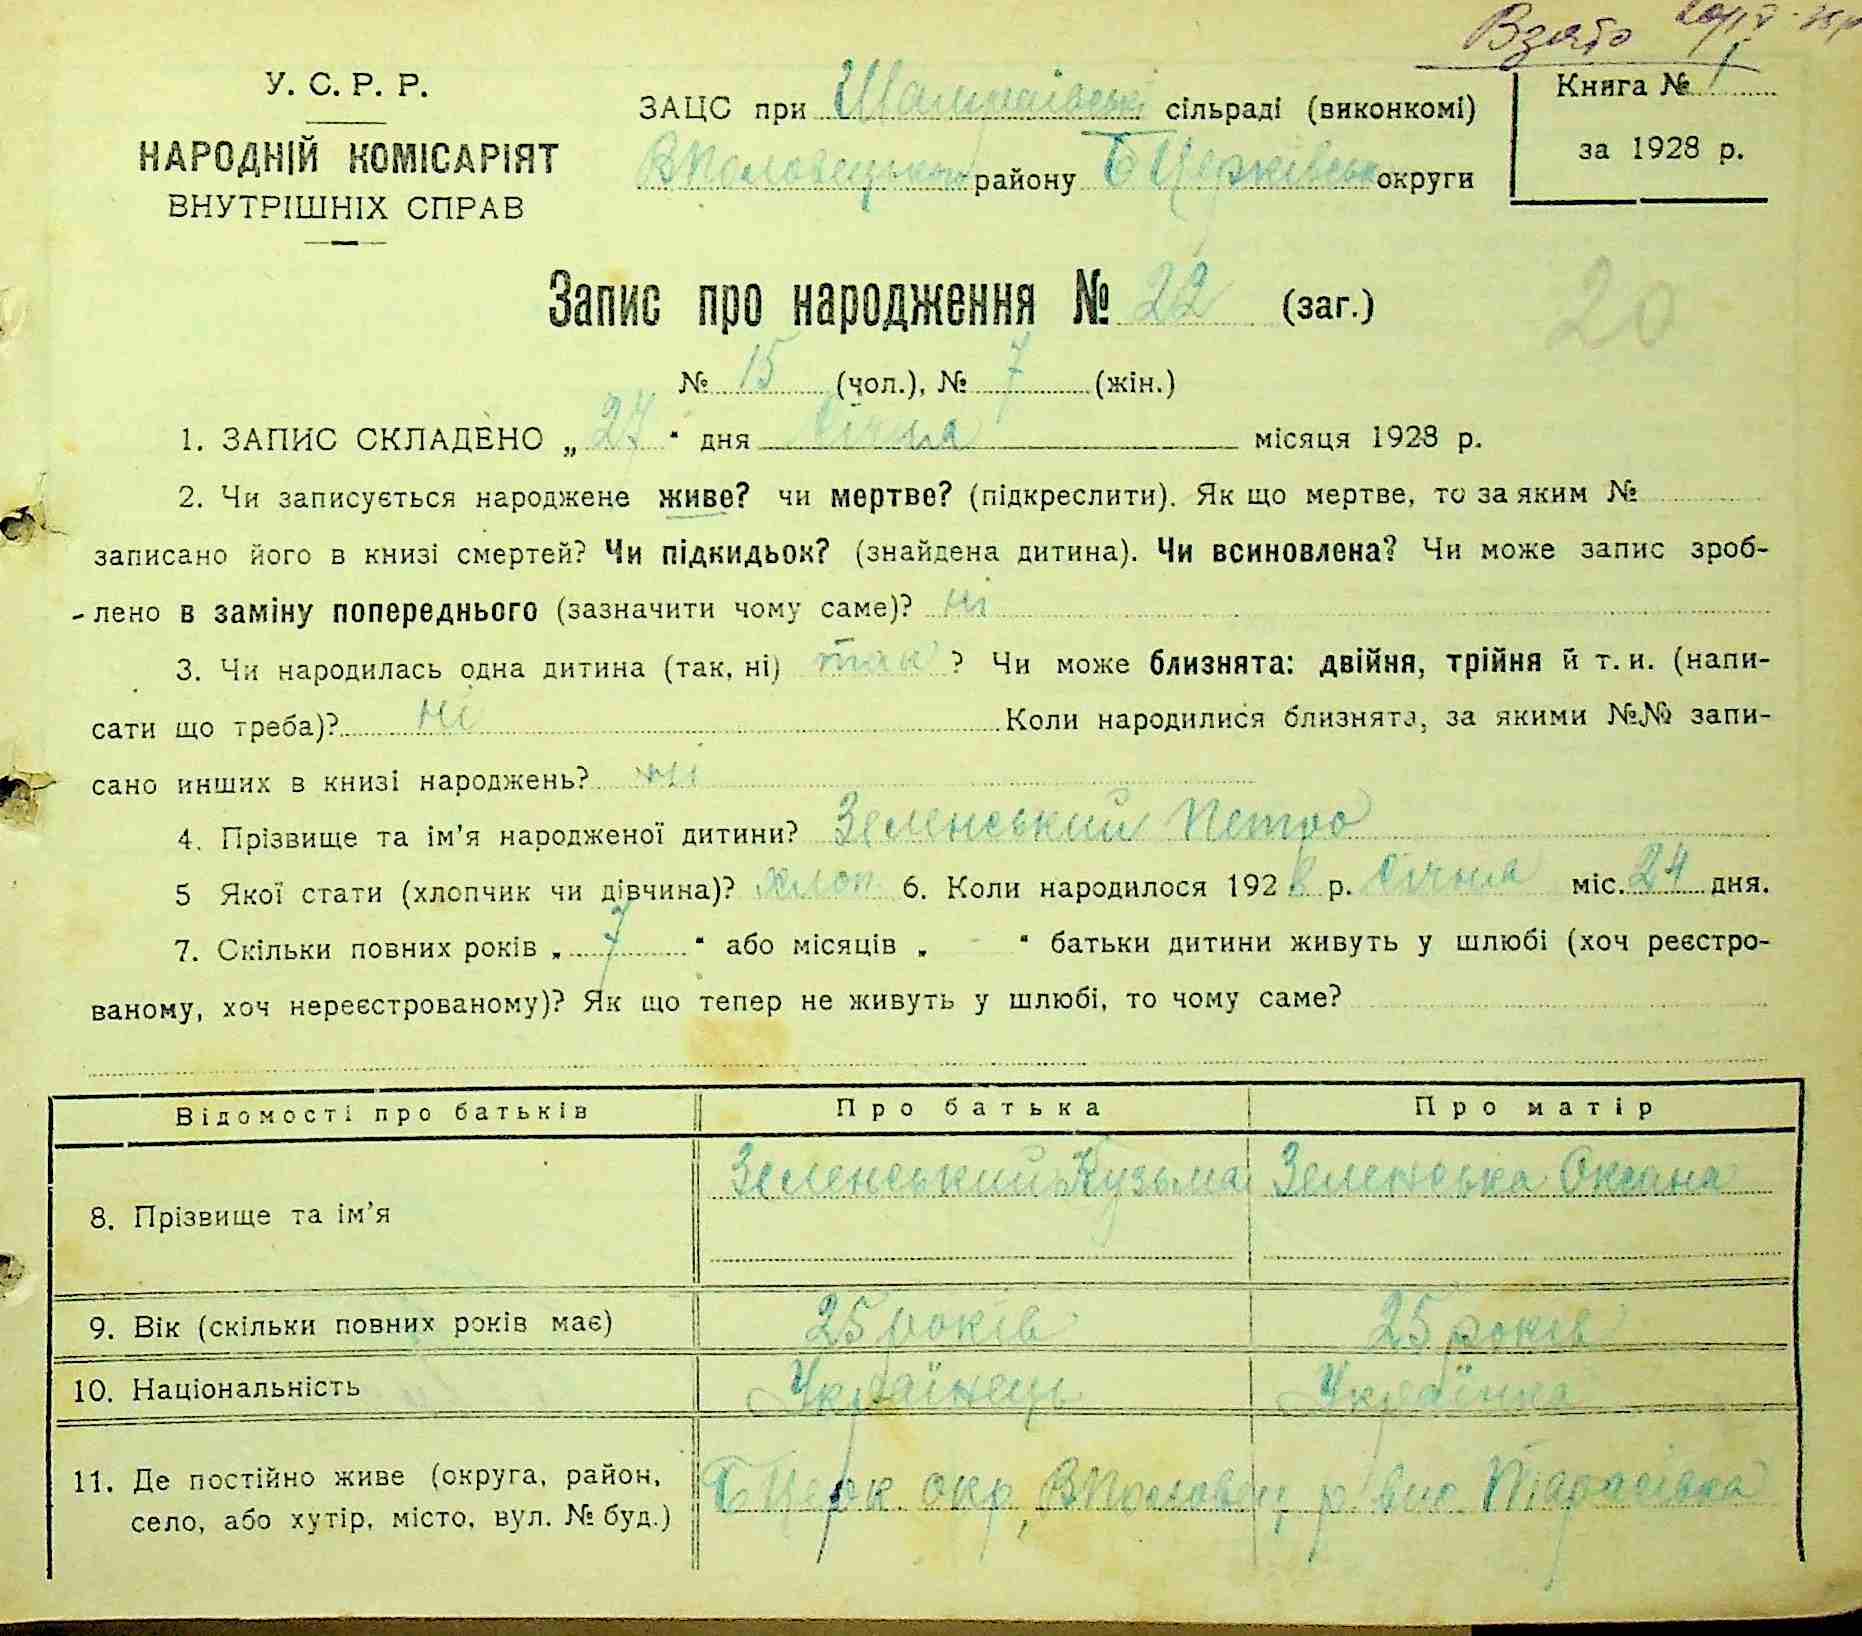 Взято
У. С. Р. Р.
НАРОДНІЙ КОМІСАРІЯТ
ВНУТРІШНІХ СПРАВ
ЗАЦС при Шамраївські сільраді (виконкомі)
ВПоловецького району БЦерківськ округи
Книга № 1
за 1928 р.
Запис про народження № 22 (заг.)
20
№ 15 (чол.), № 7 (жін.)
1. ЗАПИС СКЛАДЕНО „ 27 “ дня Січня місяця 1928 р.
2. Чи записується народжене живе? чи мертве? (підкреслити). Як що мертве, то за яким №
записано його в книзі смертей? Чи підкидьок? (знайдена дитина). Чи всиновлена? Чи може запис зроб-
лено в заміну попереднього (зазначити чому саме)? ні
3. Чи народилась одна дитина (так, ні) так ? Чи може близнята: двійня, трійня й т. и. (напи-
сати що треба)? ні Коли народилися близнята, за якими №№ запи-
сано инших в книзі народжень? ні
4. Прізвище та ім’я народженої дитини? Зеленський Петро
5 Якої стати (хлопчик чи дівчина)? хлоп. 6. Коли народилося 1928 р. Січня міс. 24 дня.
7. Скільки повних років „ 7 “ або місяців „ - “ батьки дитини живуть у шлюбі (хоч реєстро-
ваному, хоч нереєстрованому)? Як що тепер не живуть у шлюбі, то чому саме?
Відомості про батьків Про батька Про матір
8. Прізвище та ім’я Зеленський Кузьма Зеленська Оксана
9. Вік (скільки повних років має) 25 років 25 років
10. Національність Українець Українка
11. Де постійно живе (округа, район, село, або хутір, місто, вул. № буд.) БЦерк. окр, ВПоловец, р Тарасівка